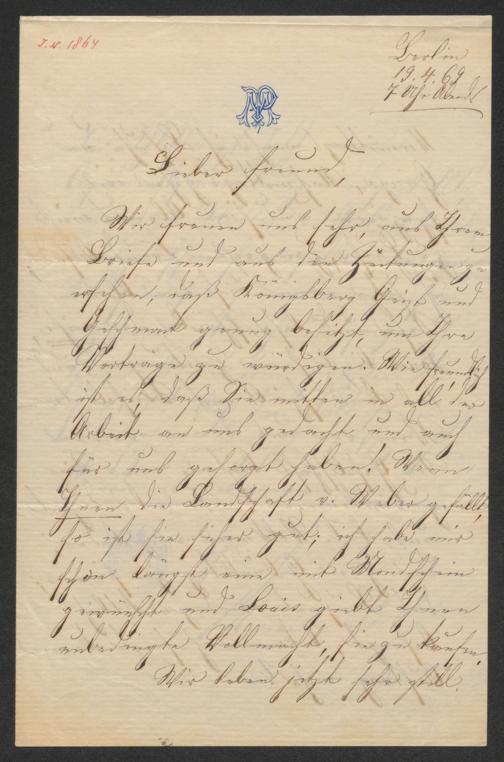 I.N. 1864
Berlin
19.4.69
7 Uhr Abends
Lieber Freund,
Wir freuen uns sehr, aus Ihrem
Briefe und aus den Zeitungen zu
ersehen, daß Königsberg Geist und
Geschmack genug besitzt, um Ihre
Vorträge zu würdigen. Wie freundlich
ist es, daß Sie mitten in all der
Arbeit an uns gedacht und auch
für uns gesorgt haben! Wenn
Ihnen die Landschaft v. Weber gefällt,
so ist sie sicher gut; ich habe mir
schon längst eine mit Mondschein
gewünscht und Louis giebt Ihnen
unbedingte Vollmacht, sie zu kaufen.
Wir leben jetzt sehr still.